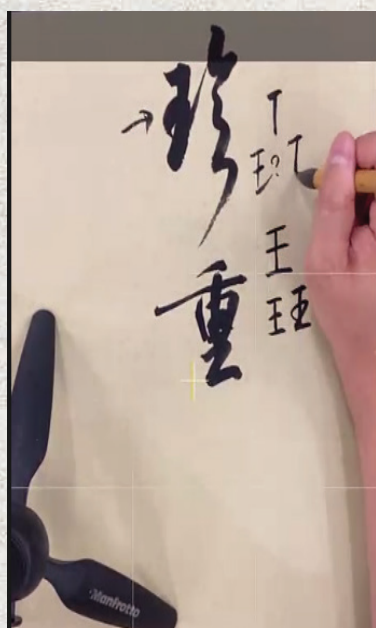 珍重
王?
王
王王
Manfrotto